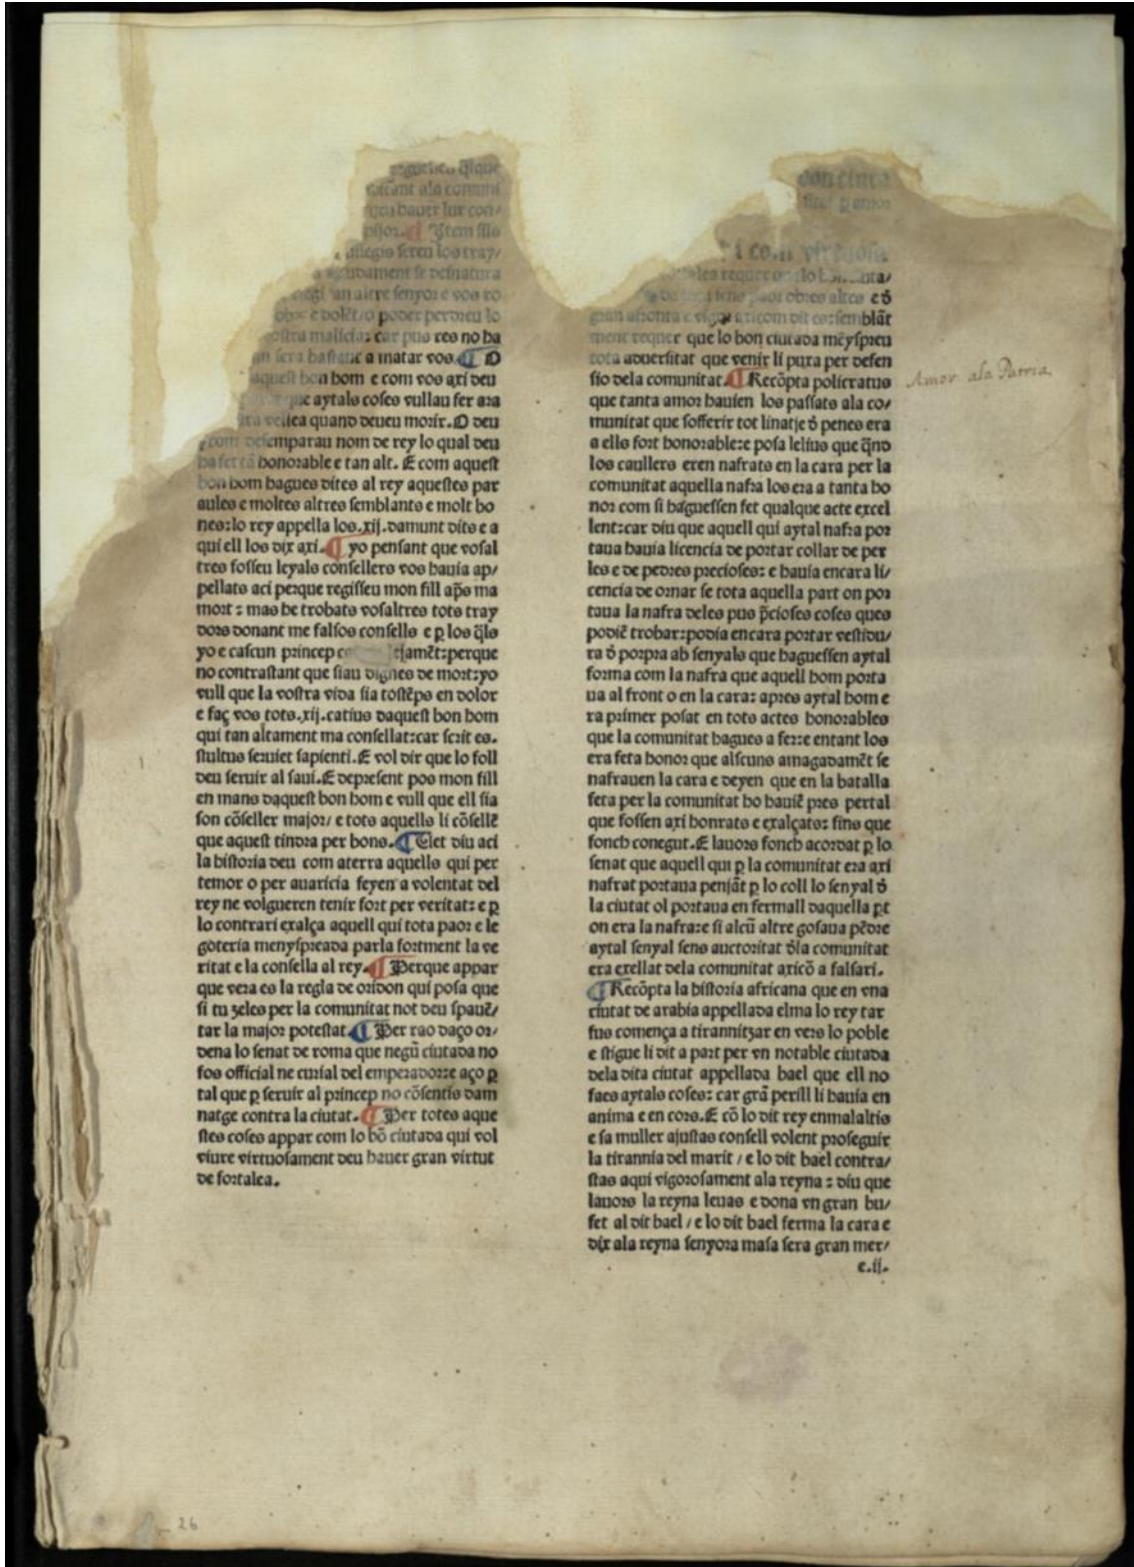 que
ala comuni
hauer lur con/
¶ Item si lo
seren los tray/
se desnatura
an altre senyor e vos ro
e volēt/o poder perdreu lo
vostra malicia: car pus ces no ha
an sera bastant a matar vos. ¶ O
aquest bon hom e com vos axi deu
que aytals coses vullau fer ara
vellea quando deueu morir. O deu
com desemparau nom de rey lo qual deu
ha fet tā honorable e tan alt. E com aquest
bon hom hagues dites al rey aquestes par
aules e moltes altres semblants e molt bo
nes: lo rey appella los .xij. damunt dits e a
qui ell los dix axi. ¶ yo pensant que vosal
tres fosseu leyals consellers vos hauia ap/
pellats aci perque regisseu mon fill ap̄s ma
mort: mas he trobats vosaltres tots tray
dors donant me falsos consells e ꝑ los q̄ls
yo e cascun princep jamēt: perque
no contrastant que siau dignes de mort: yo
vull que la vostra vida sia tostēps en dolor
e faç vos tots .xij. catius daquest bon hom
qui tan altament ma consellat: car scrit es.
stultus seruiet sapienti. E vol dir que lo foll
deu seruir al saui. E depresent pos mon fill
en mans daquest bon hom e vull que ell sia
son cōseller major/ e tots aquells li cōsellē
que aquest tindra per bons. ¶ Elet diu aci
la historia deu com aterra aquells qui per
temor o per auaricia feyen a volentat del
rey ne volgueren tenir fort per veritat: e ꝑ
lo contrari exalça aquell qui tota paor e le
goteria menyspreada parla fortment la ve
ritat e la consella al rey. ¶ Perque appar
que vera es la regla de oridon qui posa que
si tu zeles per la comunitat not deu spauē/
tar la major potestat. ¶ Per rao daço or/
dena lo senat de roma que negū ciutada no
fos official ne curial del emperador: e aço ꝑ
tal que ꝑ seruir al princep no cōsentis dam
natge contra la ciutat. ¶ Per totes aque
stes coses appar com lo bō ciutada qui vol
viure virtuosament deu hauer gran virtut
de fortalea.
don ciuta
ꝑ amor
com virtuosa
requer lo
paor obres altes e ð
gran afronta e vigor axicom dit es: semblāt
ment requer que lo bon ciutada mēyspreu
tota aduersitat que venir li puxa per defen
sio dela comunitat. ¶ Recōpta policratus
que tanta amor hauien los passats ala co/
munitat que sofferir tot linatje ð penes era
a ells fort honorable: e posa lelius que q̄nd
los caullers eren nafrats en la cara per la
comunitat aquella nafra los era a tanta ho
nor com si haguessen fet qualque acte excel
lent: car diu que aquell qui aytal nafra por
taua hauia licencia de portar collar de per
les e de pedres precioses: e hauia encara li/
cencia de ornar se tota aquella part on por
taua la nafra deles pus p̄cioses coses ques
podiē trobar: podia encara portar vestidu/
ra ð porpra ab senyals que haguessen aytal
forma com la nafra que aquell hom porta
ua al front o en la cara: apres aytal hom e
ra primer posat en tots actes honorables
que la comunitat hagues a fer: e entant los
era feta honor que alscuns amagadamēt se
nafrauen la cara e deyen que en la batalla
feta per la comunitat ho hauiē pres pertal
que fossen axi honrats e exalçats: fins que
fonch conegut. E lauors fonch acordat ꝑ lo
senat que aquell qui ꝑ la comunitat era axi
nafrat portaua penjāt ꝑ lo coll lo senyal ð
la ciutat ol portaua en fermall daquella ꝑt
on era la nafra: e si alcū altre gosaua pēdre
aytal senyal sens auctoritat ðla comunitat
era exellat dela comunitat axicō a falsari.
¶ Recōpta la historia africana que en vna
ciutat de arabia appellada elma lo rey tar
fus comença a tirannitzar en vers lo poble
e stigue li dit a part per vn notable ciutada
dela dita ciutat appellada bael que ell no
faes aytals coses: car grā perill li hauia en
anima e en cors. E cō lo dit rey enmalaltis
e sa muller ajustas consell volent proseguir
la tirannia del marit / e lo dit bael contra/
stas aqui vigorosament ala reyna: diu que
lauors la reyna leuas e dona vn gran bu/
fet al dit bael / e lo dit bael ferma la cara e
dix ala reyna senyora masa sera gran mer/
e.ij.
Amor ala Patria
26